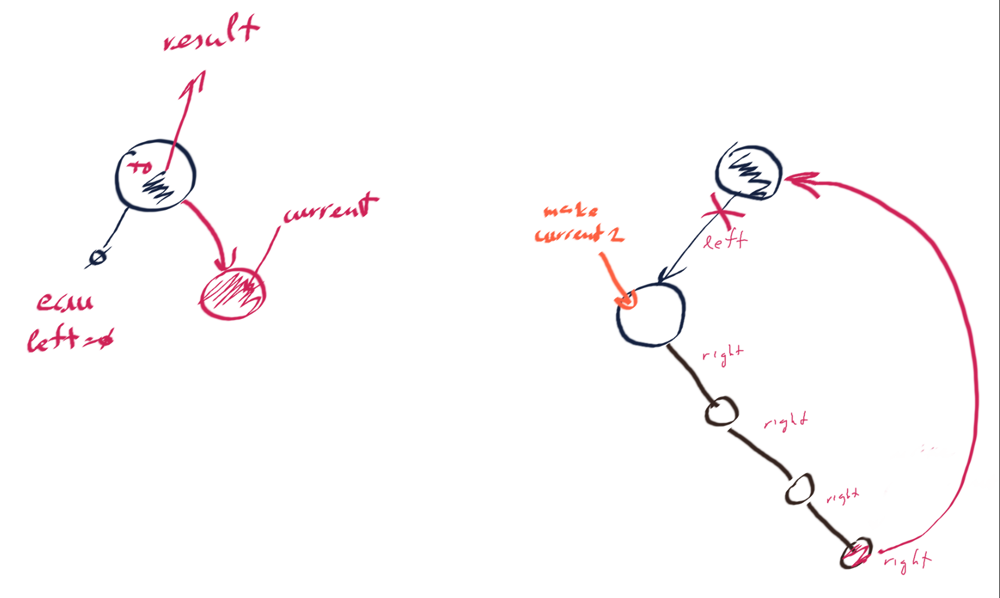 result
current
если
left=ø
make
current 2
left
right
right
right
right